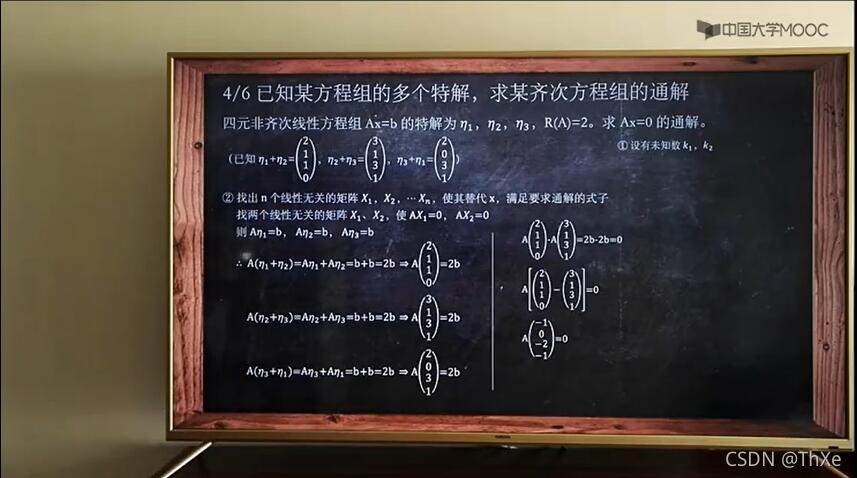 中国大学MOOC
4/6 已知某方程组的多个特解，求某齐次方程组的通解
四元非齐次线性方程组 Ax=b 的特解为 η₁，η₂，η₃，R(A)=2。求 Ax=0 的通解。
(已知 η₁+η₂=(2 1 1 0)，η₂+η₃=(3 1 3 1)，η₃+η₁=(2 0 3 1))
① 设有未知数 k₁，k₂
② 找出 n 个线性无关的矩阵 X₁，X₂，⋯Xₙ，使其替代 x，满足要求通解的式子
找两个线性无关的矩阵 X₁、X₂，使 AX₁=0，AX₂=0
则 Aη₁=b，Aη₂=b，Aη₃=b
∴ A(η₁+η₂)=Aη₁+Aη₂=b+b=2b ⇒ A(2 1 1 0)=2b
A(η₂+η₃)=Aη₂+Aη₃=b+b=2b ⇒ A(3 1 3 1)=2b
A(η₃+η₁)=Aη₃+Aη₁=b+b=2b ⇒ A(2 0 3 1)=2b
A(2 1 1 0)-A(3 1 3 1)=2b-2b=0
A[(2 1 1 0)−(3 1 3 1)]=0
A(−1 0 −2 −1)=0
CSDN @ThXe